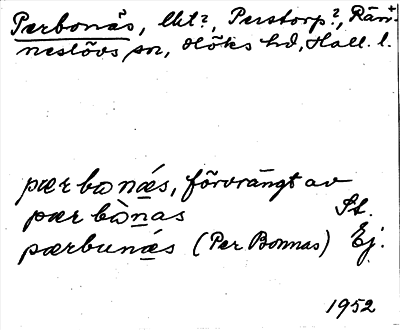 Pærbonás, lht?, Perstorp?, Rän-
neslövs sn, Höks hd, Hall. l.
pærbonǽs, förvrängt av
pærbònas St.
pærbunǽs (Per Bonnas) Ej.
1952